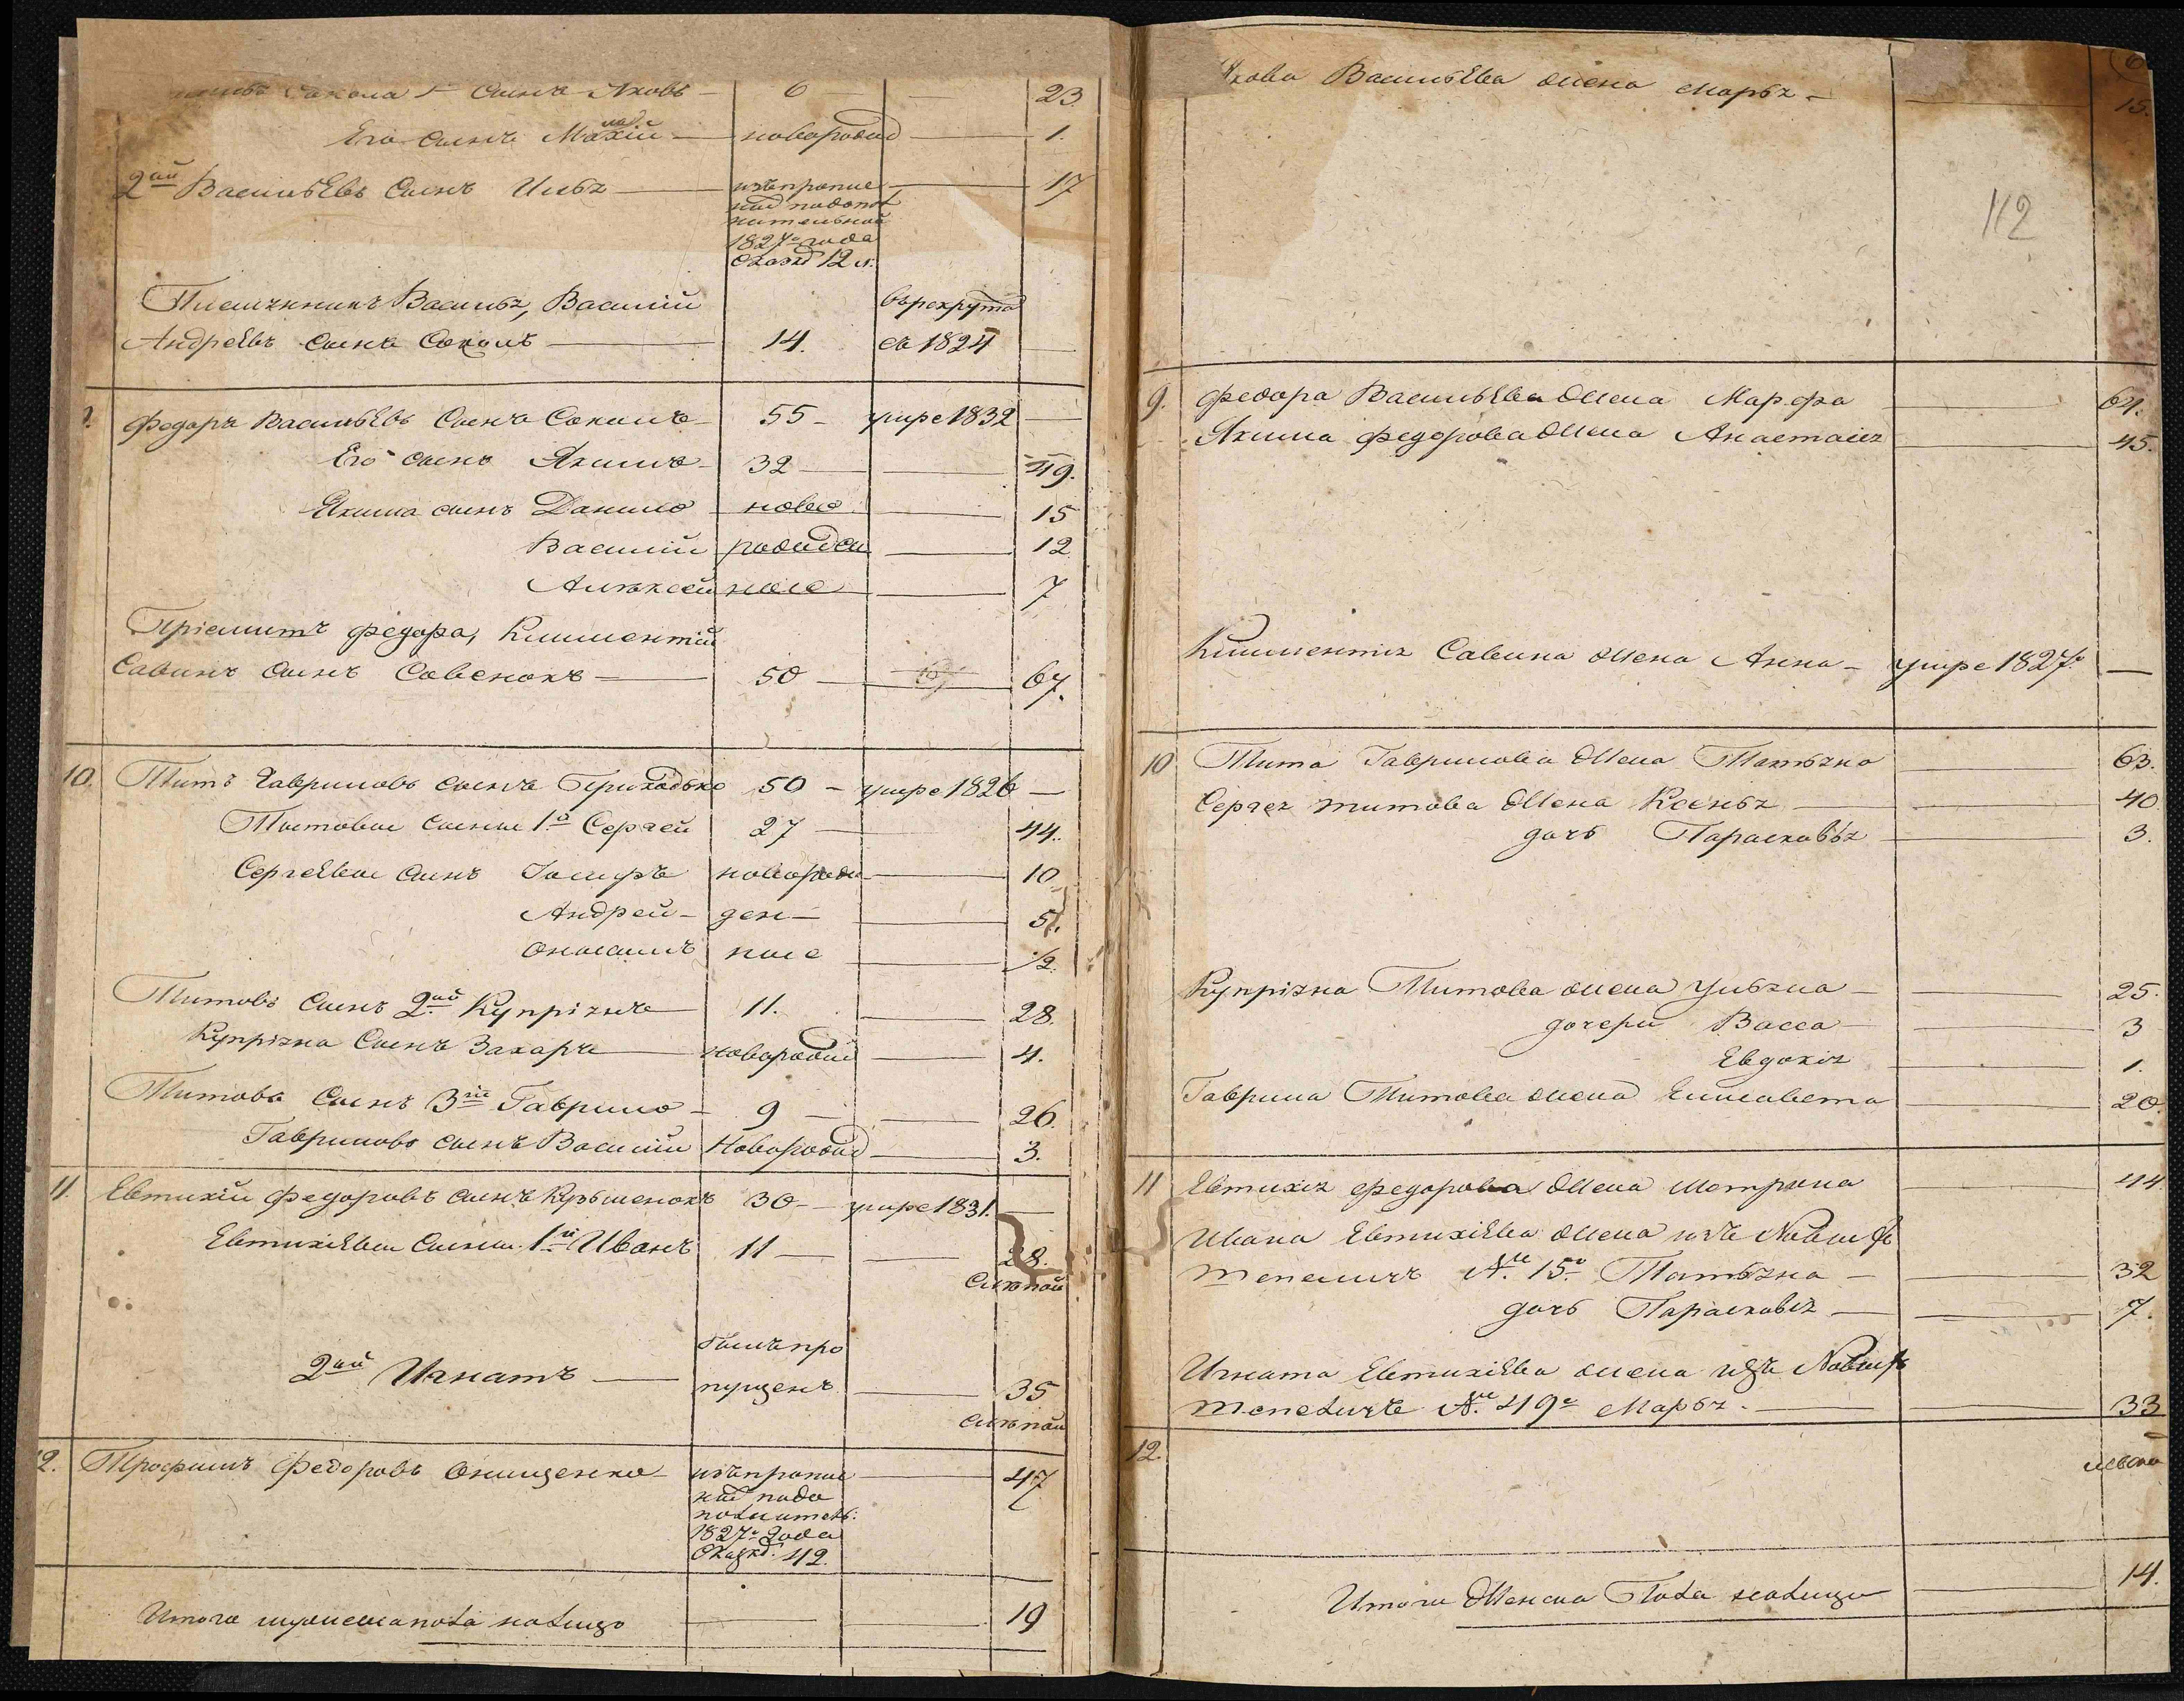 Сокола 1й Сынъ Яковъ — 6 — — 23.
Его Сынъ Мохій — новорожд — 1.
2ой Васильевъ Сынъ Илья — изъ пропис — 17
ной по допол
нительной
1827го года
Сказкѣ 12 л.
Племянникъ Василья, Василій въ рекрута
Андреевъ Сынъ Соколъ — 14. съ 1824 —
Федоръ Васильевъ Сынъ Соколъ — 55 — умре 1832 —
Его сынъ Якимъ — 32 — — 49.
Якима сынъ Данило — ново — 15
Василій рожден — 12
Алексей ные — 7
Пріемитъ Федора, Климентій
Савинъ Сынъ Савенокъ — 50 — — 67.
10. Титъ Гавриловъ сынъ Приходько 50 — умре 1826 —
Титовы сыны 1й Сергей 27 — — 44.
Сергеевы сынъ Іосифъ новорож — 10
Андрей — ден — — 5.
ные — 1/2.
Титовъ Сынъ 2ой Купріянъ — 11. — 28.
Купріяна Сынъ Захаръ — новорожд — 4.
Титовъ Сынъ 3ій Гаврило — 9 — — 26.
Гавриловъ сынъ Василій Новорожд — 3.
11. Евтихій Федоровъ сынъ Крышенокъ 30 — умре 1831. —
Евтихіевы Сыны 1й Иванъ 11 — — 28.
Слѣпой
былъ про
2ой Игнатъ — пущенъ — 35
слѣпой
12. Трофимъ Федоровъ Онищенко — изъ пропис — 47
ной по до
полнитель:
1827го года
Сказкѣ. 42.
Итого мужеска пола налицо — — 19
Якова Васильева жена Марья — — 15.
112
9. Федора Васильева жена Марфа — 64.
Якима Федорова жена Анастасія — 45.
Климентія Савина жена Анна — умре 1827го —
10 Тита Гаврилова жена Татьяна — 63.
Сергея Титова жена Ксенья — 40
дочь Парасковья — 3.
Купріяна Титова жена Ульяна — — 25.
дочери Васса — — 3
Евдокія — 1.
Гаврила Титова жена Елисавета — 20.
11 Евтихія Федорова жена Мотрона — 44
Ивана Евтихіева жена изъ
№ 15го Татьяна — — 32
дочь Парасковія — — 7.
Игната Евтихіева жена изъ
№ 49го Марья. — — 33
12.
Итого Женска Пола налицо — 14.